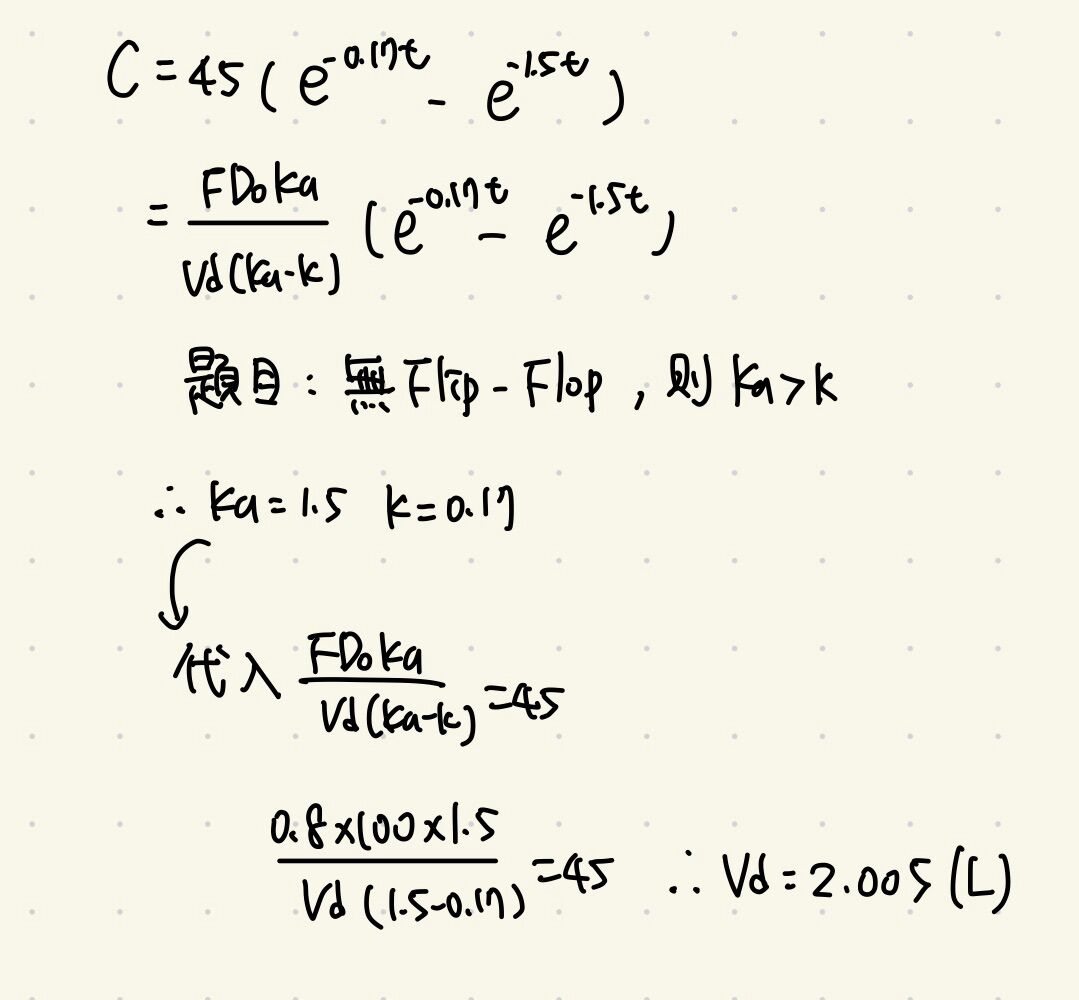 C = 45 ( e^-0.17t - e^-1.5t )
= FD₀Ka / Vd(Ka-k) (e^-0.17t - e^-1.5t)
題目：無 Flip - Flop , 則 Ka > k
∴ Ka = 1.5 k = 0.17
代入 FD₀Ka / Vd(Ka-k) = 45
0.8×100×1.5 / Vd (1.5-0.17) = 45 ∴ Vd = 2.005 (L)